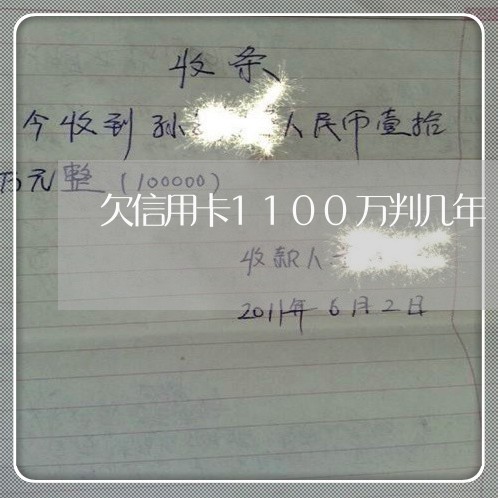 收条
今收到孙 人民币壹拾
万元整（100000）
欠信用卡1100万判几年
收款人
2011年6月2日